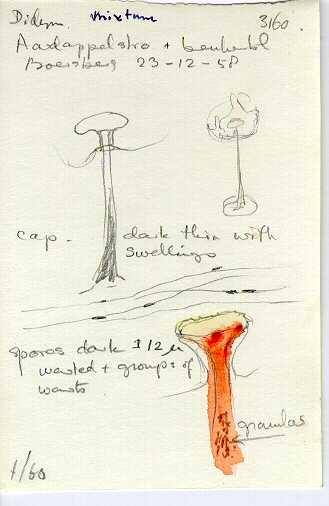 Didym. mixture 3160.
Aardappelstro + beukenbl
Boersberg 23-12-58
cap. dark thin with
swellings
spores dark ± 12 µ
warted + groups of
warts
granulas
1/60